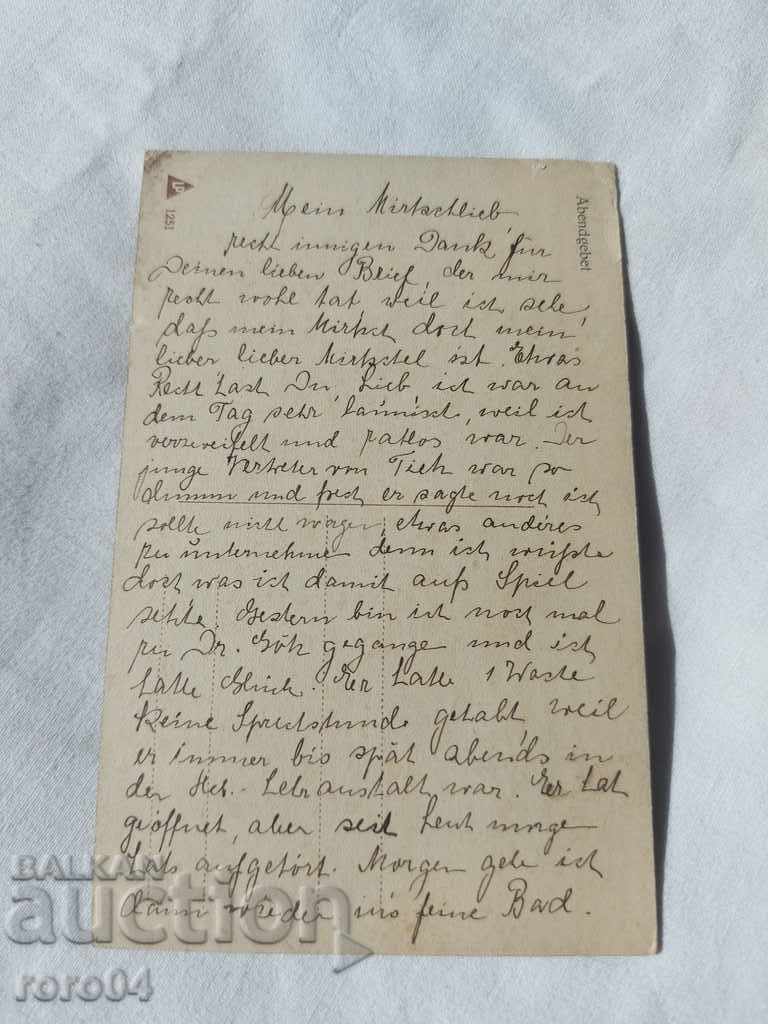 1251
Abendgebet
Mein Mirtschlieb,
recht innigen Dank für
Deinen lieben Brief, der mir
recht wohl tat, weil ich sehe,
daß mein Mirtsch doch mein
lieber lieber Mirtschel ist. Etwas
Recht hast Du, Lieb ich war an
dem Tag sehr launisch, weil ich
verzweifelt und ratlos war. Der
junge Vertreter von war so
dumm und frech er sagte noch ich
sollte nicht wagen, etwas anderes
zu unternehme denn ich wüßte
doch was ich damit aufs Spiel
setzte. Gestern bin ich noch mal
zu Dr. gegange und ich
hatte Glück. Er hatte 1 Woche
keine Sprechstunde gehabt, weil
er immer bis spät abends in
der Lehranstalt war. Er hat
geöffnet, aber seit heut morge
hats aufgehört. Morgen gehe ich
dann wieder ins feine Bad.
BALKAN
auction
roro04